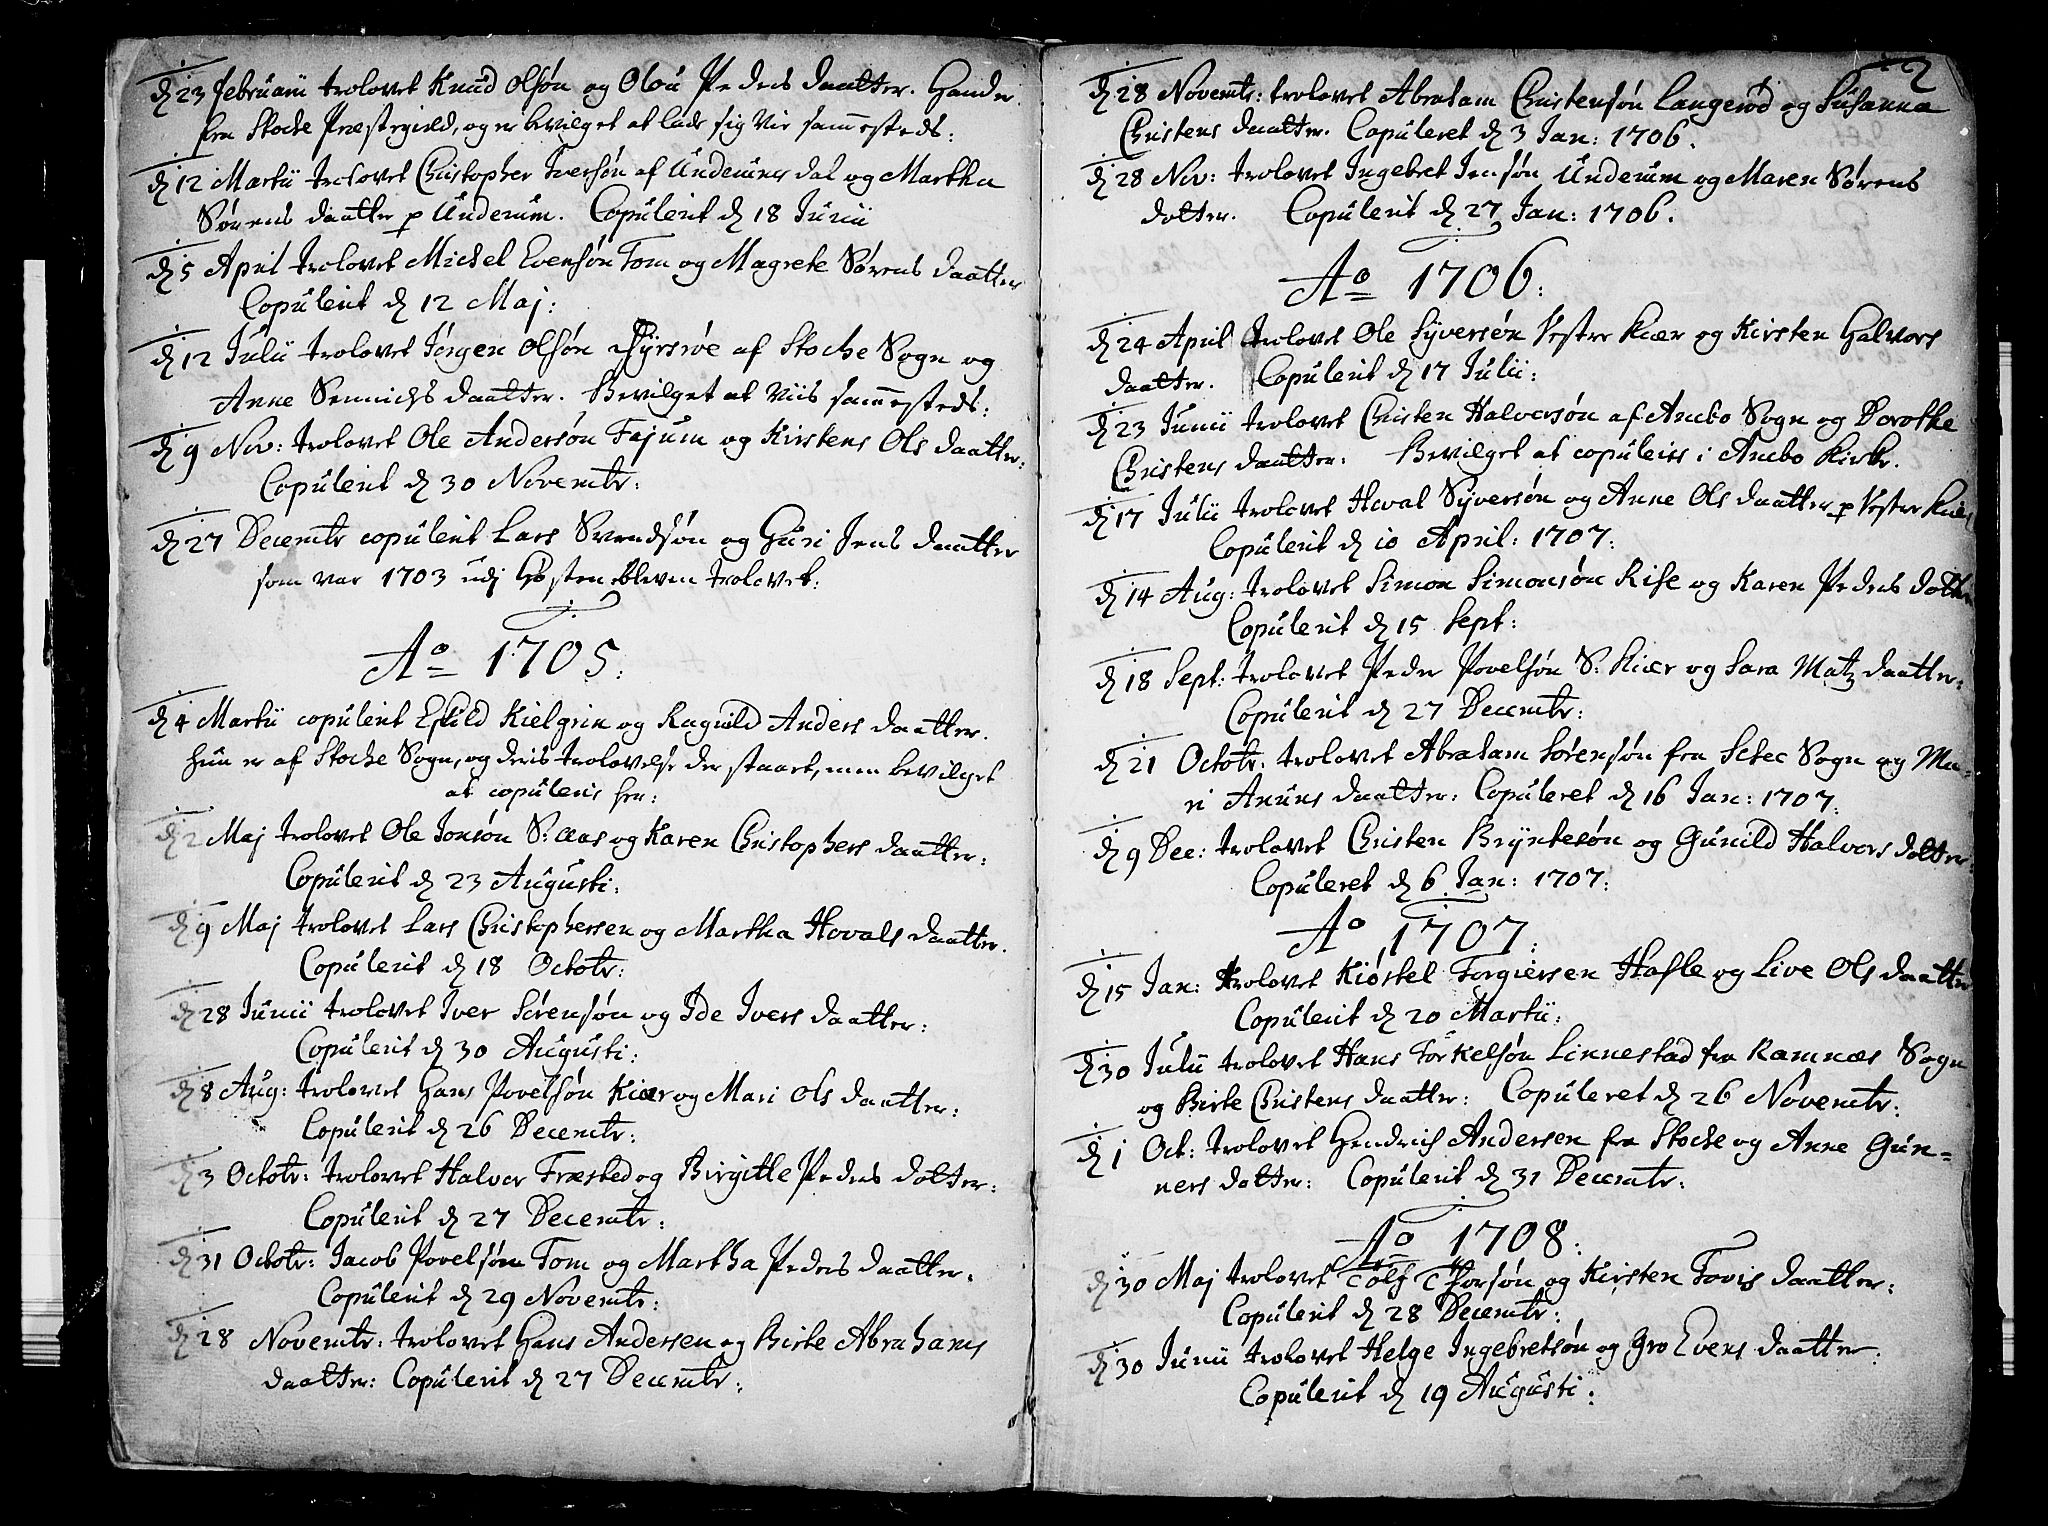 d 23 Februarii trolovet Knud Olsøn og Olou Peders daatter. Hand er
fra Stocke Præstegield, og er bevilget at lade sig vie sammesteds:
d 12 Martii trolovet Christopher Iversøn af Underums dal og Martha
Sørens daatter p Underum. Copulerit d 18 Junii
d 5 April trolovet Michel Evensøn Tom og Magrete Sørens daatter
Copulerit d 12 Maj:
d 12 Julii trolovet Jørgen Olsøn af Stocke Sogn og
Anne Sennichs daatter. Bevilget at viis sammesteds:
d 9 Nov: trolovet Ole Andersøn Fajum og Kirstens Ols daatter:
Copulerit d 30 Novembr:
d 27 Decembr copulerit Lars Svendsøn og Guri Jens daatter
som var 1703 udj Høsten bleven trolovet:
Ao 1705:
d 4 Martii copulerit Eskild Kielgrin og Raguild Anders daatter.
hun er af Stocke Sogn, og deris trolovelse der staaet, men bevilget
at copuleris her:
d 2 Maj trolovet Ole Jonsøn S: Aas og Karen Christophers daatter:
Copulerit d 23 Augusti:
d 9 Maj trolovet Lars Christophersen og Martha Hovals daatter.
Copulerit d 18 Octobr:
d 28 Junii trolovet Iver Sørensøn og Ide Ivers daatter:
Copulerit d 30 Augusti:
d 8 Aug: trolovet Hans Povelsøn Kiær og Mari Ols daatter:
Copulerit d 26 Decembr:
d 3 Octobr: trolovet Halvor Træsted og Birgitte Peders dotter:
Copulerit d 27 Decembr:
d 31 Octobr: Jacob Povelsøn Tom og Martha Peders daatter.
Copulerit d 29 Novembr:
d 28 Novembr: trolovet Hans Andersen og Birte Abrahams
daatter: Copulerit d 27 Decembr:
2
d 28 Novembr: trolovet Abraham Christensøn Langerød og Susanna
Christens daatter. Copuleret d 3 Jan: 1706.
d 28 Nov: trolovet Ingebret Jensøn Underum og Maren Sørens
dotter. Copulerit d 27 Jan: 1706.
Ao 1706:
d 24 April trolovet Ole Syversøn Vestre Kiær og Kirsten Halvors
daatter. Copulerit d 17 Julii:
d 23 Junii trolovet Christen Halvorsøn af Arebo Sogn og Dorothe
Christens daatter: Bevilget at copuleris i Arebo Kirke.
d 17 Julii trolovet Hoval Syversøn og Anne Ols daatter p Vestre Kiær
Copulerit d 10 April: 1707:
d 14 Aug: trolovet Simon Simonsøn Rise og Karen Peders dotter
Copulerit d 15 Sept:
d 18 Sept: trolovet Peder Povelsøn S: Kiær og Sara Matz daatter:
Copulerit d 27 Decembr:
d 21 Octobr: trolovet Abraham Sørensøn fra Sogn og Ma-
ri Anuns daatter: Copuleret d 16 Jan: 1707:
d 9 Dec: trolovet Christen Bryntesøn og Gunild Halvors dotter:
Copuleret d 6 Jan: 1707:
Ao 1707:
d 15 Jan: trolovet Kiøstel Torgiersen Hasle og Live Ols daatter
Copulerit d 20 Martii:
d 30 Julii trolovet Hans Torkelsøn Linnestad fra Ramnæs Sogn
og Birte Christens daatter: Copuleret d 26 Novembr:
d 1 Oct: trolovet Hendrich Andersen fra Stocke og Anne Gun-
ners dotter: Copulerit d 31 Decembr:
Ao 1708:
d 30 Maj trolovet Tolf Thorsøn og Kirsten Tovis daatter:
Copulerit d 28 Decembr:
d 30 Junii trolovet Helge Ingebretsøn og Gro Evens daatter:
Copulerit d 19 Augusti: